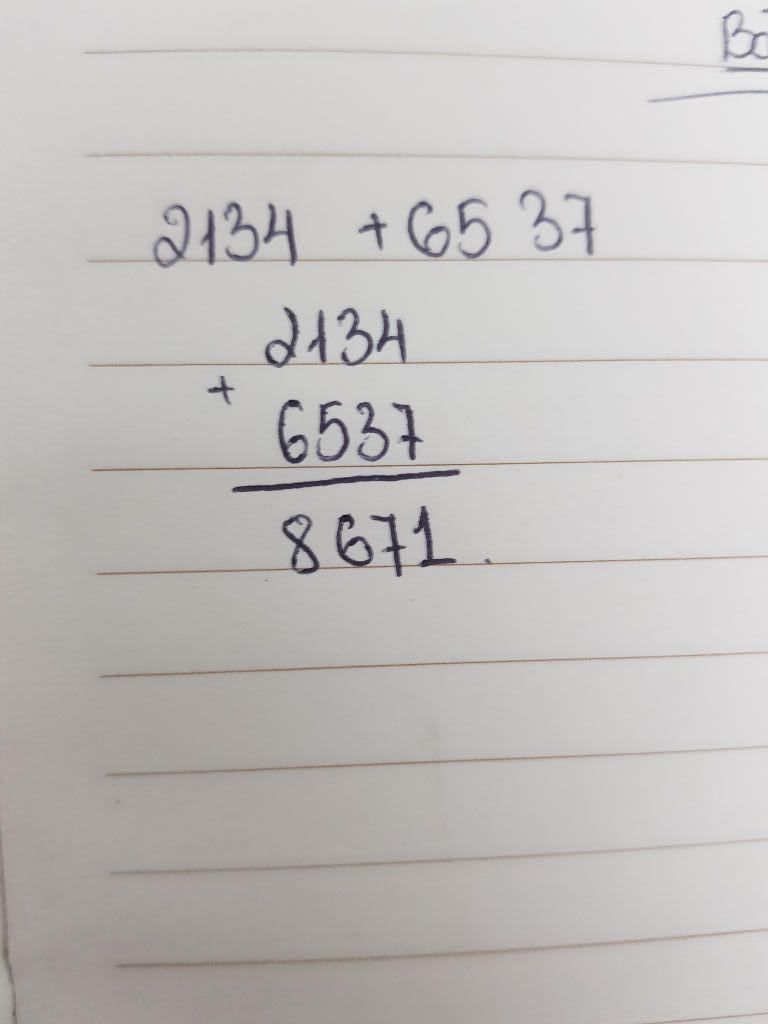 2134 + 6537
2134
+
6537
8671.